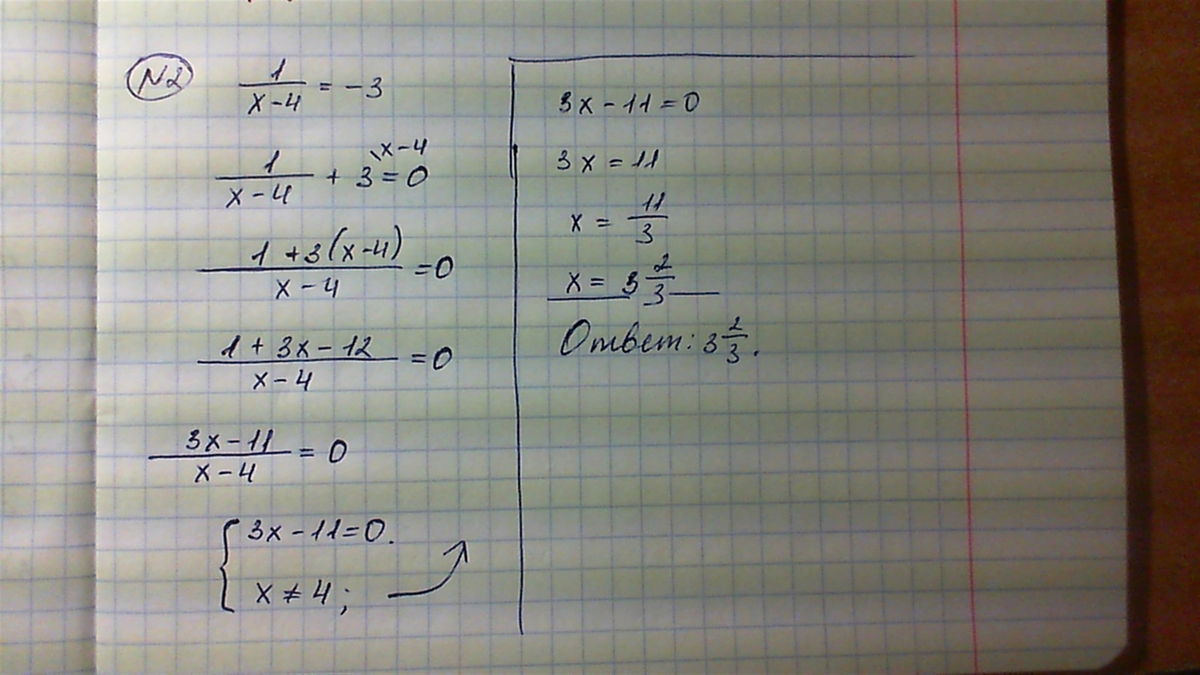 N2
1/(x-4) = -3
1/(x-4) + 3 \x-4 = 0
(1+3(x-4))/(x-4) = 0
(1+3x-12)/(x-4) = 0
(3x-11)/(x-4) = 0
{ 3x-11=0.
x≠4;
3x-11=0
3x=11
x = 11/3
x = 3 2/3
Ответ: 3 2/3.